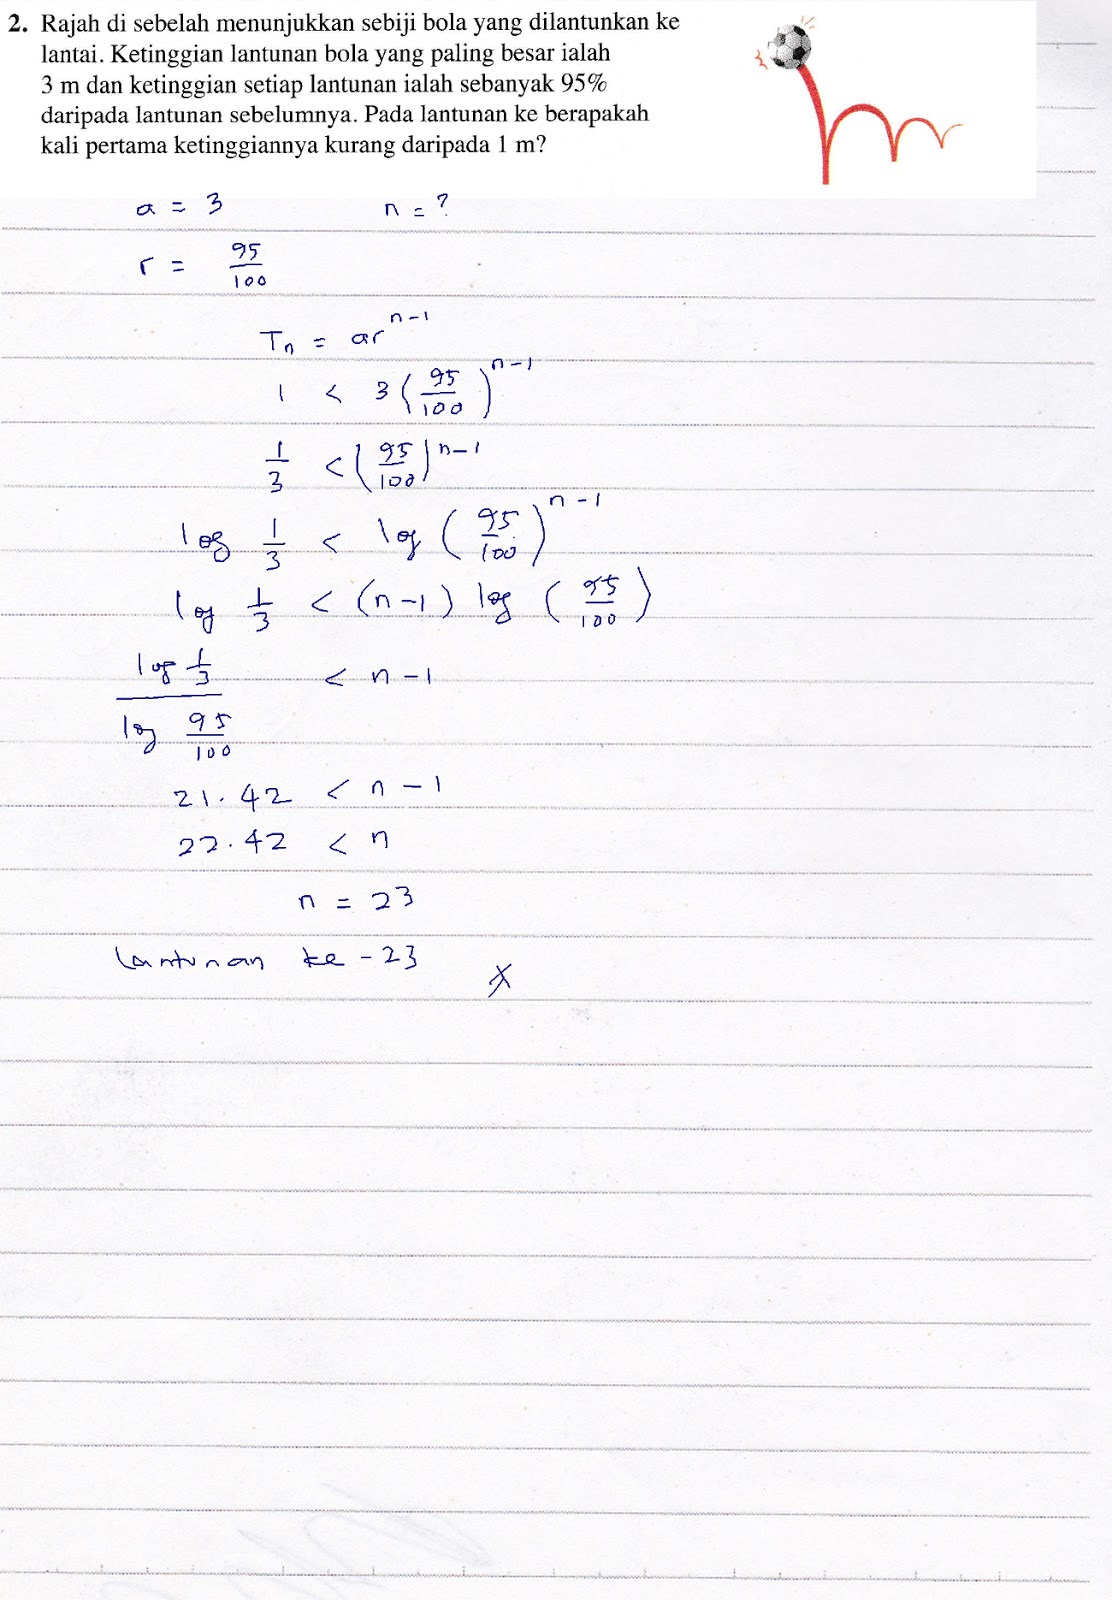 2. Rajah di sebelah menunjukkan sebiji bola yang dilantunkan ke
lantai. Ketinggian lantunan bola yang paling besar ialah
3 m dan ketinggian setiap lantunan ialah sebanyak 95%
daripada lantunan sebelumnya. Pada lantunan ke berapakah
kali pertama ketinggiannya kurang daripada 1 m?
a = 3 n = ?
r = 95/100
Tn = ar^(n-1)
1 < 3 (95/100)^(n-1)
1/3 < (95/100)^(n-1)
log 1/3 < log (95/100)^(n-1)
log 1/3 < (n-1) log (95/100)
log 1/3 / log 95/100 < n - 1
21.42 < n - 1
22.42 < n
n = 23
lantunan ke - 23